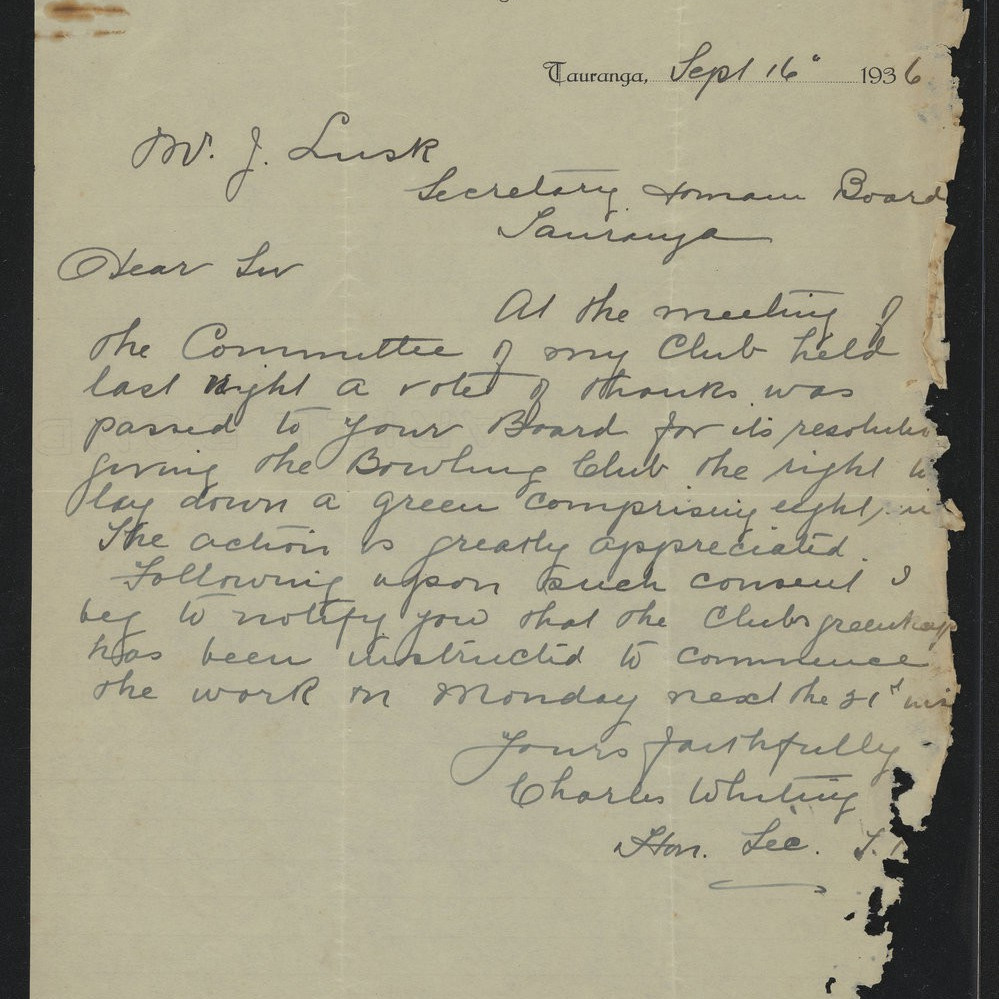 Tauranga, Sept 16" 1936
Mr. J. Lusk
Secretary Domain Board
Tauranga
Dear Sir
At the meeting of
the Committee of my Club held
last night a vote of thanks was
passed to your Board for its
giving the Bowling Club the right
lay down a green comprising eight
The action is greatly appreciated.
Following upon such consent I
beg to notify you that the Clubs
has been instructed to commence
the work on Monday next the 21st
Yours faithfully
Charles Whiting
Hon. Sec. T.